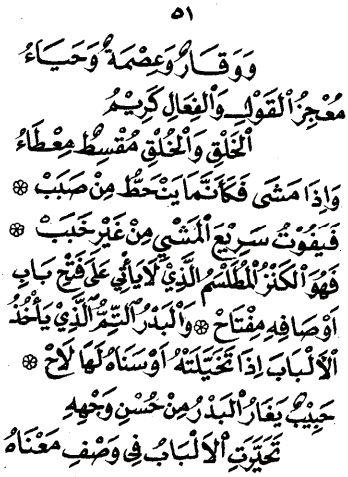 ٥١
وَوَقَارٌ وَعِصْمَةٌ وَحَيَاءُ
مُعْجِزُ الْقَوْلِ وَالْفِعَالِ كَرِيْمُ
الْخَلْقِ وَالْخُلْقِ مُقْسِطٌ مِعْطَاءُ
وَإِذَا مَشَى فَكَأَنَّمَا يَنْحَطُّ مِنْ صَبَبْ ۞
فَيَفُوْتُ سَرِيْعَ الْمَشْيِ مِنْ غَيْرِ خَبَبْ ۞
فَهُوَ الْكَنْزُ الْمُطَلْسَمُ الَّذِيْ لَا يَأْتِيْ عَلَى فَتْحِ بَابِ
أَوْصَافِهِ مِفْتَاحْ ۞ وَالْبَدْرُ التِّمُّ الَّذِيْ يَأْخُذُ
الْأَلْبَابَ إِذَا تَخَيَّلَتْهُ أَوْ سَنَاهُ لَهَا لَاحْ ۞
حَبِيْبٌ يَغَارُ الْبَدْرُ مِنْ حُسْنِ وَجْهِهِ
تَحَيَّرَتِ الْأَلْبَابُ فِيْ وَصْفِ مَعْنَاهُ